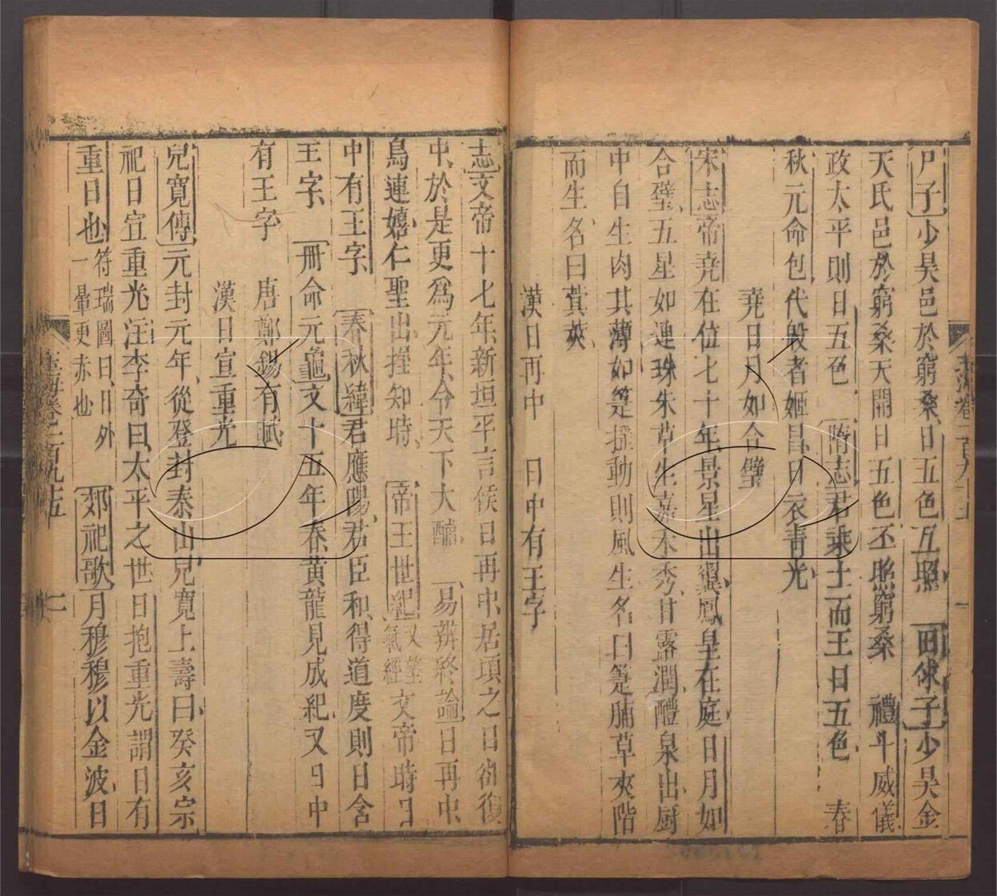 尸子少昊邑於窮桑日五色互照　田俅子少昊金
天氏邑於窮桑天開日五色丕照窮桑　禮斗威儀
政太平則日五色　隋志君乘土而王日五色　春
秋元命包代殷者姬昌日衣青光
堯日月如合璧
宋志帝堯在位七十年景星出翼鳳皇在庭日月如
合璧五星如連珠朱草生嘉禾秀甘露潤醴泉出厨
中自生肉其薄如箑搖動則風生名曰箑脯草夾階
而生名曰蓂莢
漢日再中　日中有王字
志文帝十七年新垣平言候日再中居頃之日卻復
中於是更為元年令天下大酺　易辨終論日再中
鳥連嬉仁聖出握知時　帝王世紀文帝時日
中有王字　春秋緯君應陽君臣和得道度則日含
王字　冊命元龜文十五年春黃龍見成紀又日中
有王字　唐鄭錫有賦
漢日宣重光
兒寛傳元封元年從登封泰山兒寛上壽曰癸亥宗
祀日宣重光注李奇曰太平之世日抱重光謂日有
重日也符瑞圖曰日外一暈更赤也　郊祀歌月穆穆以金波日
玉海卷一百九十五　二